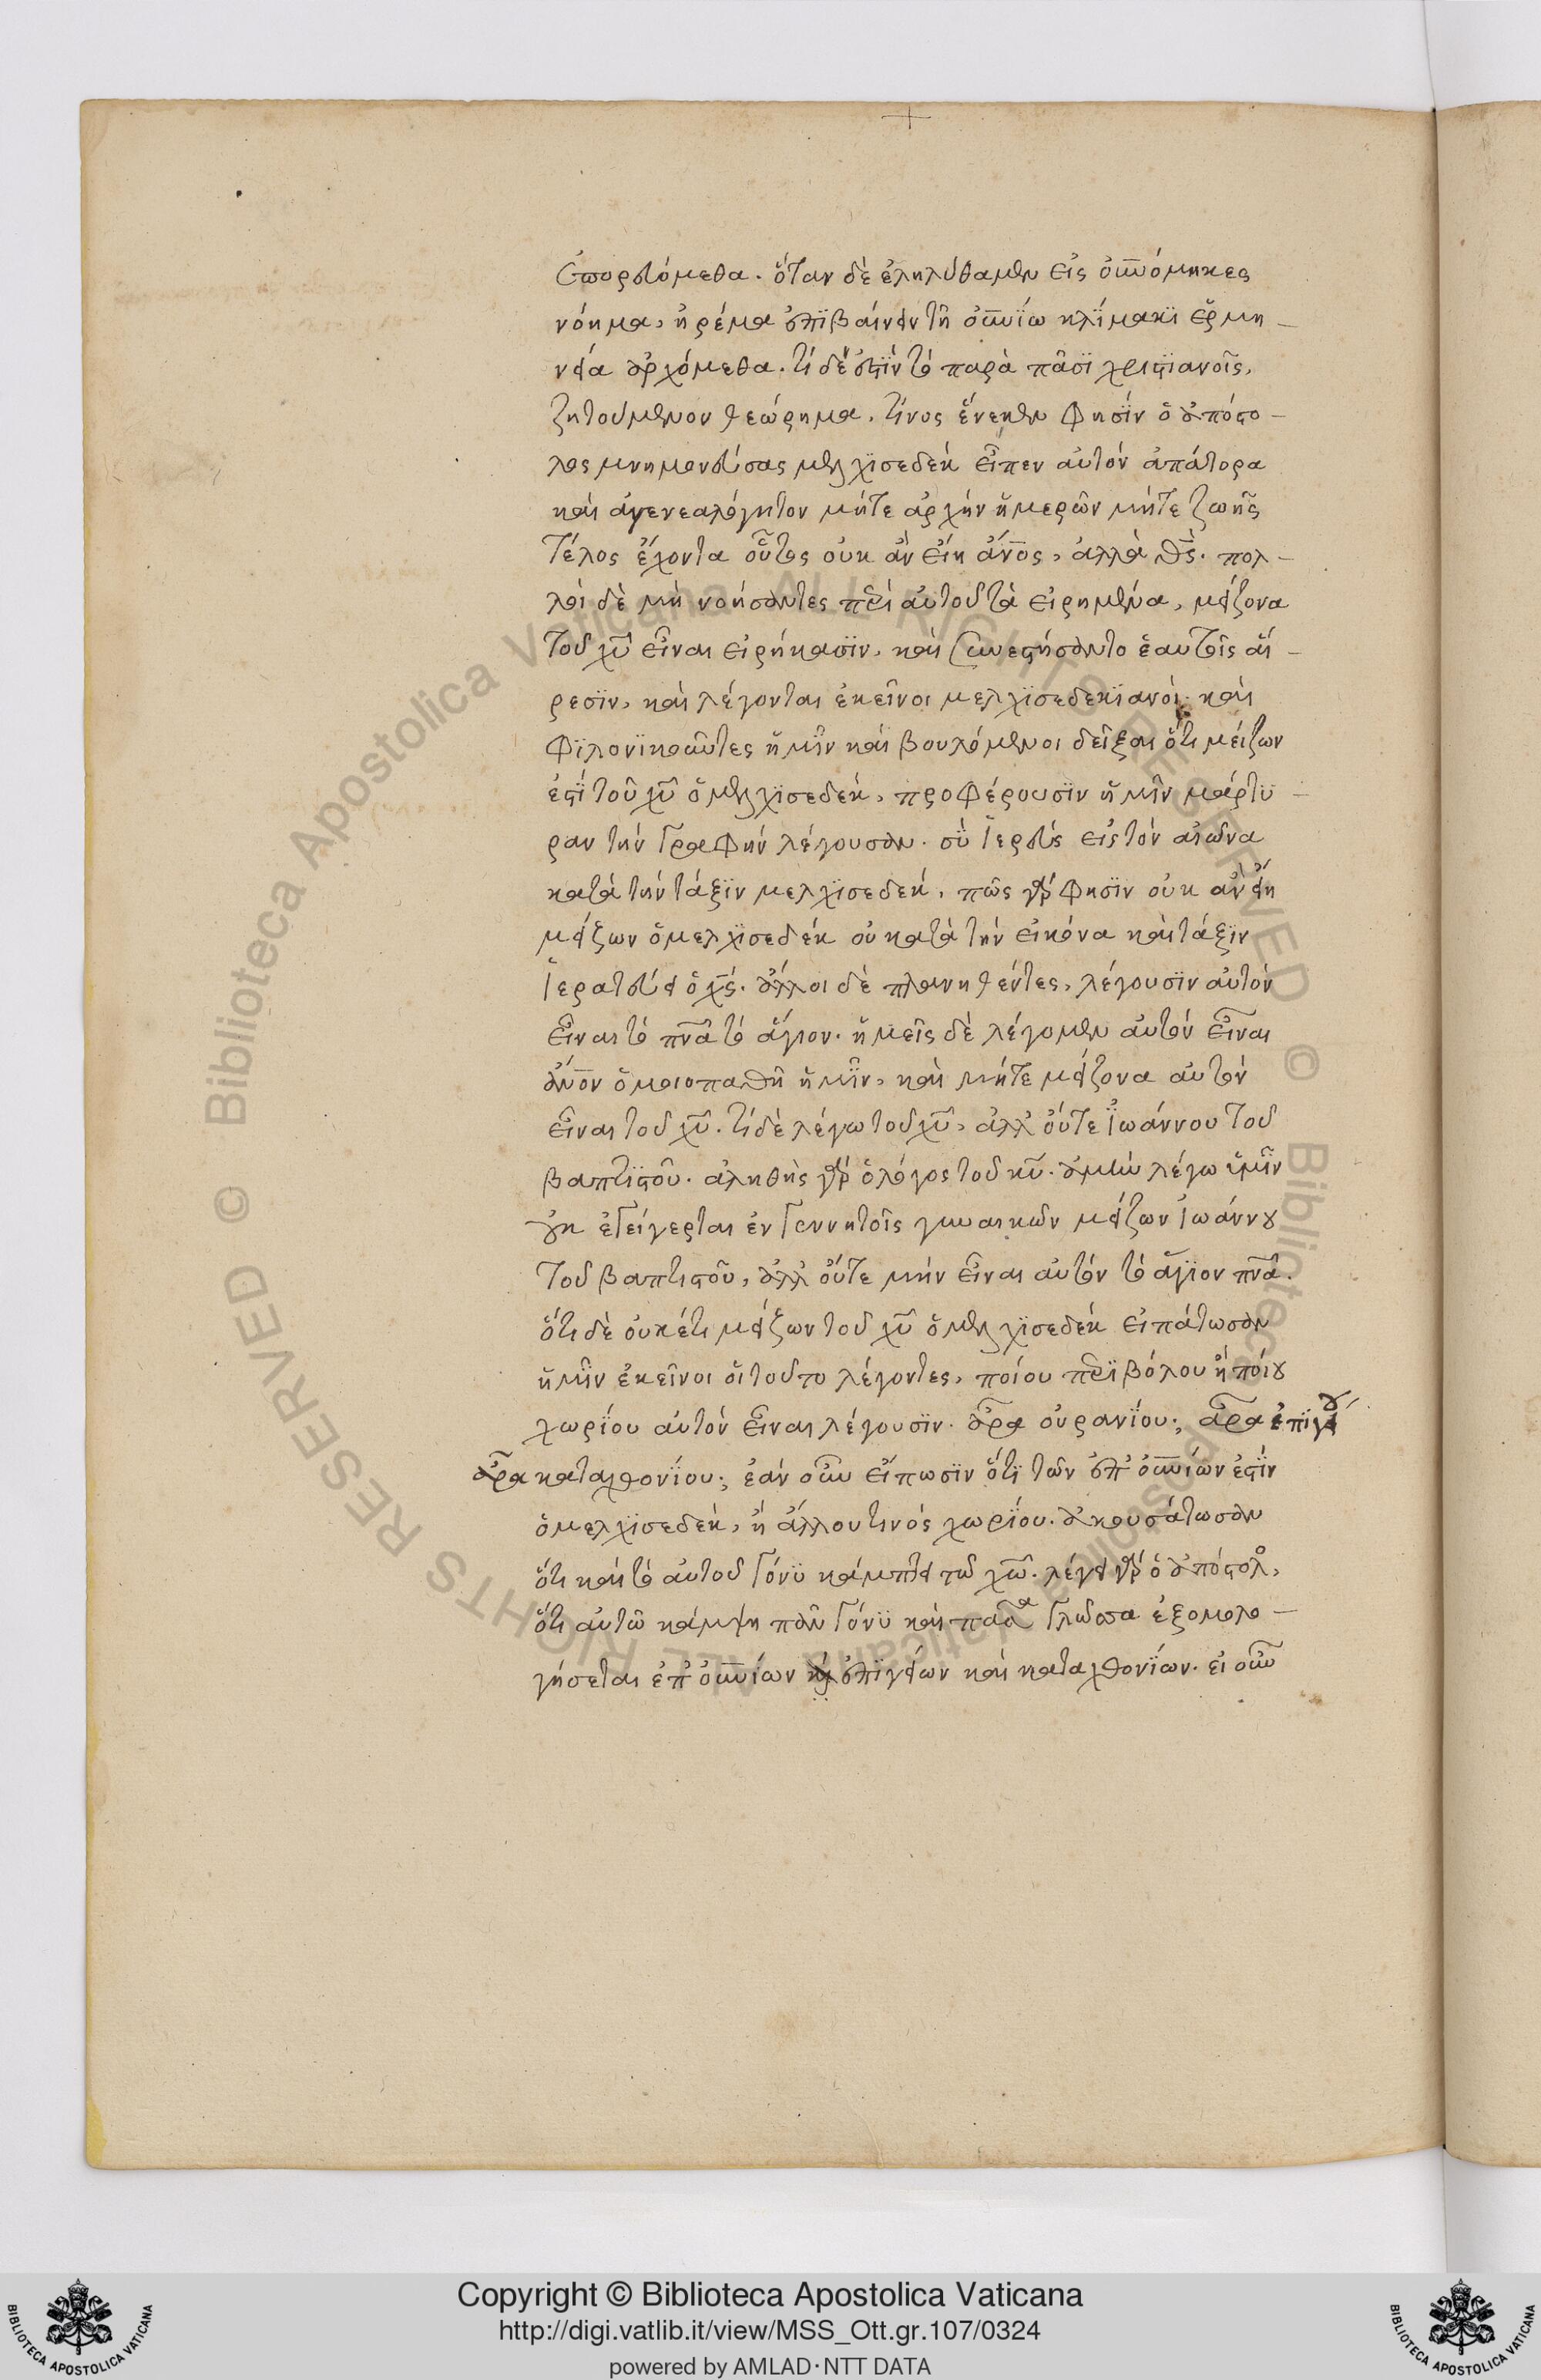 ἐπορευόμεθα. ὅταν δὲ ἐληλύθαμεν εἰς οὐνόμηκες
νόημα, ἠρέμα ἐπϊβαίνειν τῆ οὐνΐω κλΐμακϊ ἑρμη-
νεία ἀρχόμεθα. τί δέ ἐστϊν τὸ παρὰ πᾶσϊ χριστϊανοῖς,
ζητούμενον θεώρημα. τίνος ἕνεκεν φησὶν ὁ ἀπόστο-
λος μνημονεύσας μελχϊσεδὲκ εἶπεν αὐτὸν ἀπάτορα
καὶ ἀγενεαλόγητον μήτε ἀρχὴν ἡμερῶν μήτε ζωῆς
τέλος ἔχοντα οὗτος οὐκ ἂν εἴη ἄνος, ἀλλὰ θς. πολ-
λοὶ δὲ μὴ νοήσαντες περὶ αὐτοῦ τὰ εἰρημένα, μείζονα
τοῦ χυ εἶναι εἰρήκασϊν, καὶ συνεστήσαντο ἑαυτοῖς αἵ-
ρεσϊν, καὶ λέγονται ἐκεῖνοι μελχϊσεδεκϊανοί. καὶ
φϊλονϊκοῦντες ἡμῖν καὶ βουλόμενοι δεῖξαι ὅτι μείζων
ἐστΐ τοῦ χυ ὁ μελχϊσεδὲκ, προφέρουσϊν ἡμῖν μάρτϋ-
ραν τὴν γραφὴν λέγουσαν. σὺ ϊερεὺς εἰς τὸν αἰῶνα
κατὰ τὴν τάξϊν μελχϊσεδὲκ. πῶς γάρ φησϊν οὐκ ἂν εἴη
μείζων ὁ μελχϊσεδὲκ οὗ κατὰ τὴν εἰκόνα καὶ τάξϊν
ϊερατεύει ὁ χς. ἄλλοι δὲ πλανηθέντες, λέγουσϊν αὐτὸν
εἶναι τὸ πνα τὸ ἅγιον. ἡμεῖς δὲ λέγομεν αὐτὸν εἶναι
ἄνον ὁμοιοπαθῆ ἡμῖν, καὶ μήτε μείζονα αὐτὸν
εἶναι τοῦ χυ. τί δὲ λέγω τοῦ χυ, ἀλλ᾽ οὔτε ϊωάννου τοῦ
βαπτϊστοῦ. ἀληθὴς γὰρ ὁ λόγος τοῦ κυ. ἀμὴν λέγω ὑμῖν
οὐκ ἐγείγερται ἐν γεννητοῖς γυναικῶν μείζων ϊωάννου
τοῦ βαπτιστοῦ, ἀλλ᾽ οὔτε μὴν εἶναι αὐτὸν τὸ ἅγϊον πνα.
ὅτι δὲ οὐκέτι μείζων τοῦ χυ ὁ μελχϊσεδὲκ εἰπάτωσαν
ἡμῖν ἐκεῖνοι οἱ τοῦτο λέγοντες, ποίου περϊβόλου ἢ ποίου
χωρίου αὐτὸν εἶναι λέγουσϊν. ἆρα οὐρανΐου; ἆρα ἐπϊγείου
ἆρα καταχθονΐου; ἐὰν οὖν εἴπωσϊν ὅτϊ τῶν ἐπ᾽ οὐνίων ἐστϊν
ὁ μελχϊσεδὲκ, ἢ ἄλλου τινὸς χωρΐου. ἀκουσάτωσαν
ὅτι καὶ τὸ αὐτοῦ γόνϋ κάμπτει τῶ χω. λέγει γὰρ ὁ ἀπόστολος,
ὅτι αὐτῶ κάμψη πᾶν γόνϋ καὶ πᾶσα γλῶσσα ἐξομολο-
γήσεται ἐπ᾽ οὐνίων καὶ ἐπϊγείων καὶ καταχθονΐων. εἰ οὖν
Copyright © Biblioteca Apostolica Vaticana
http://digi.vatlib.it/view/MSS_Ott.gr.107/0324
powered by AMLAD·NTT DATA